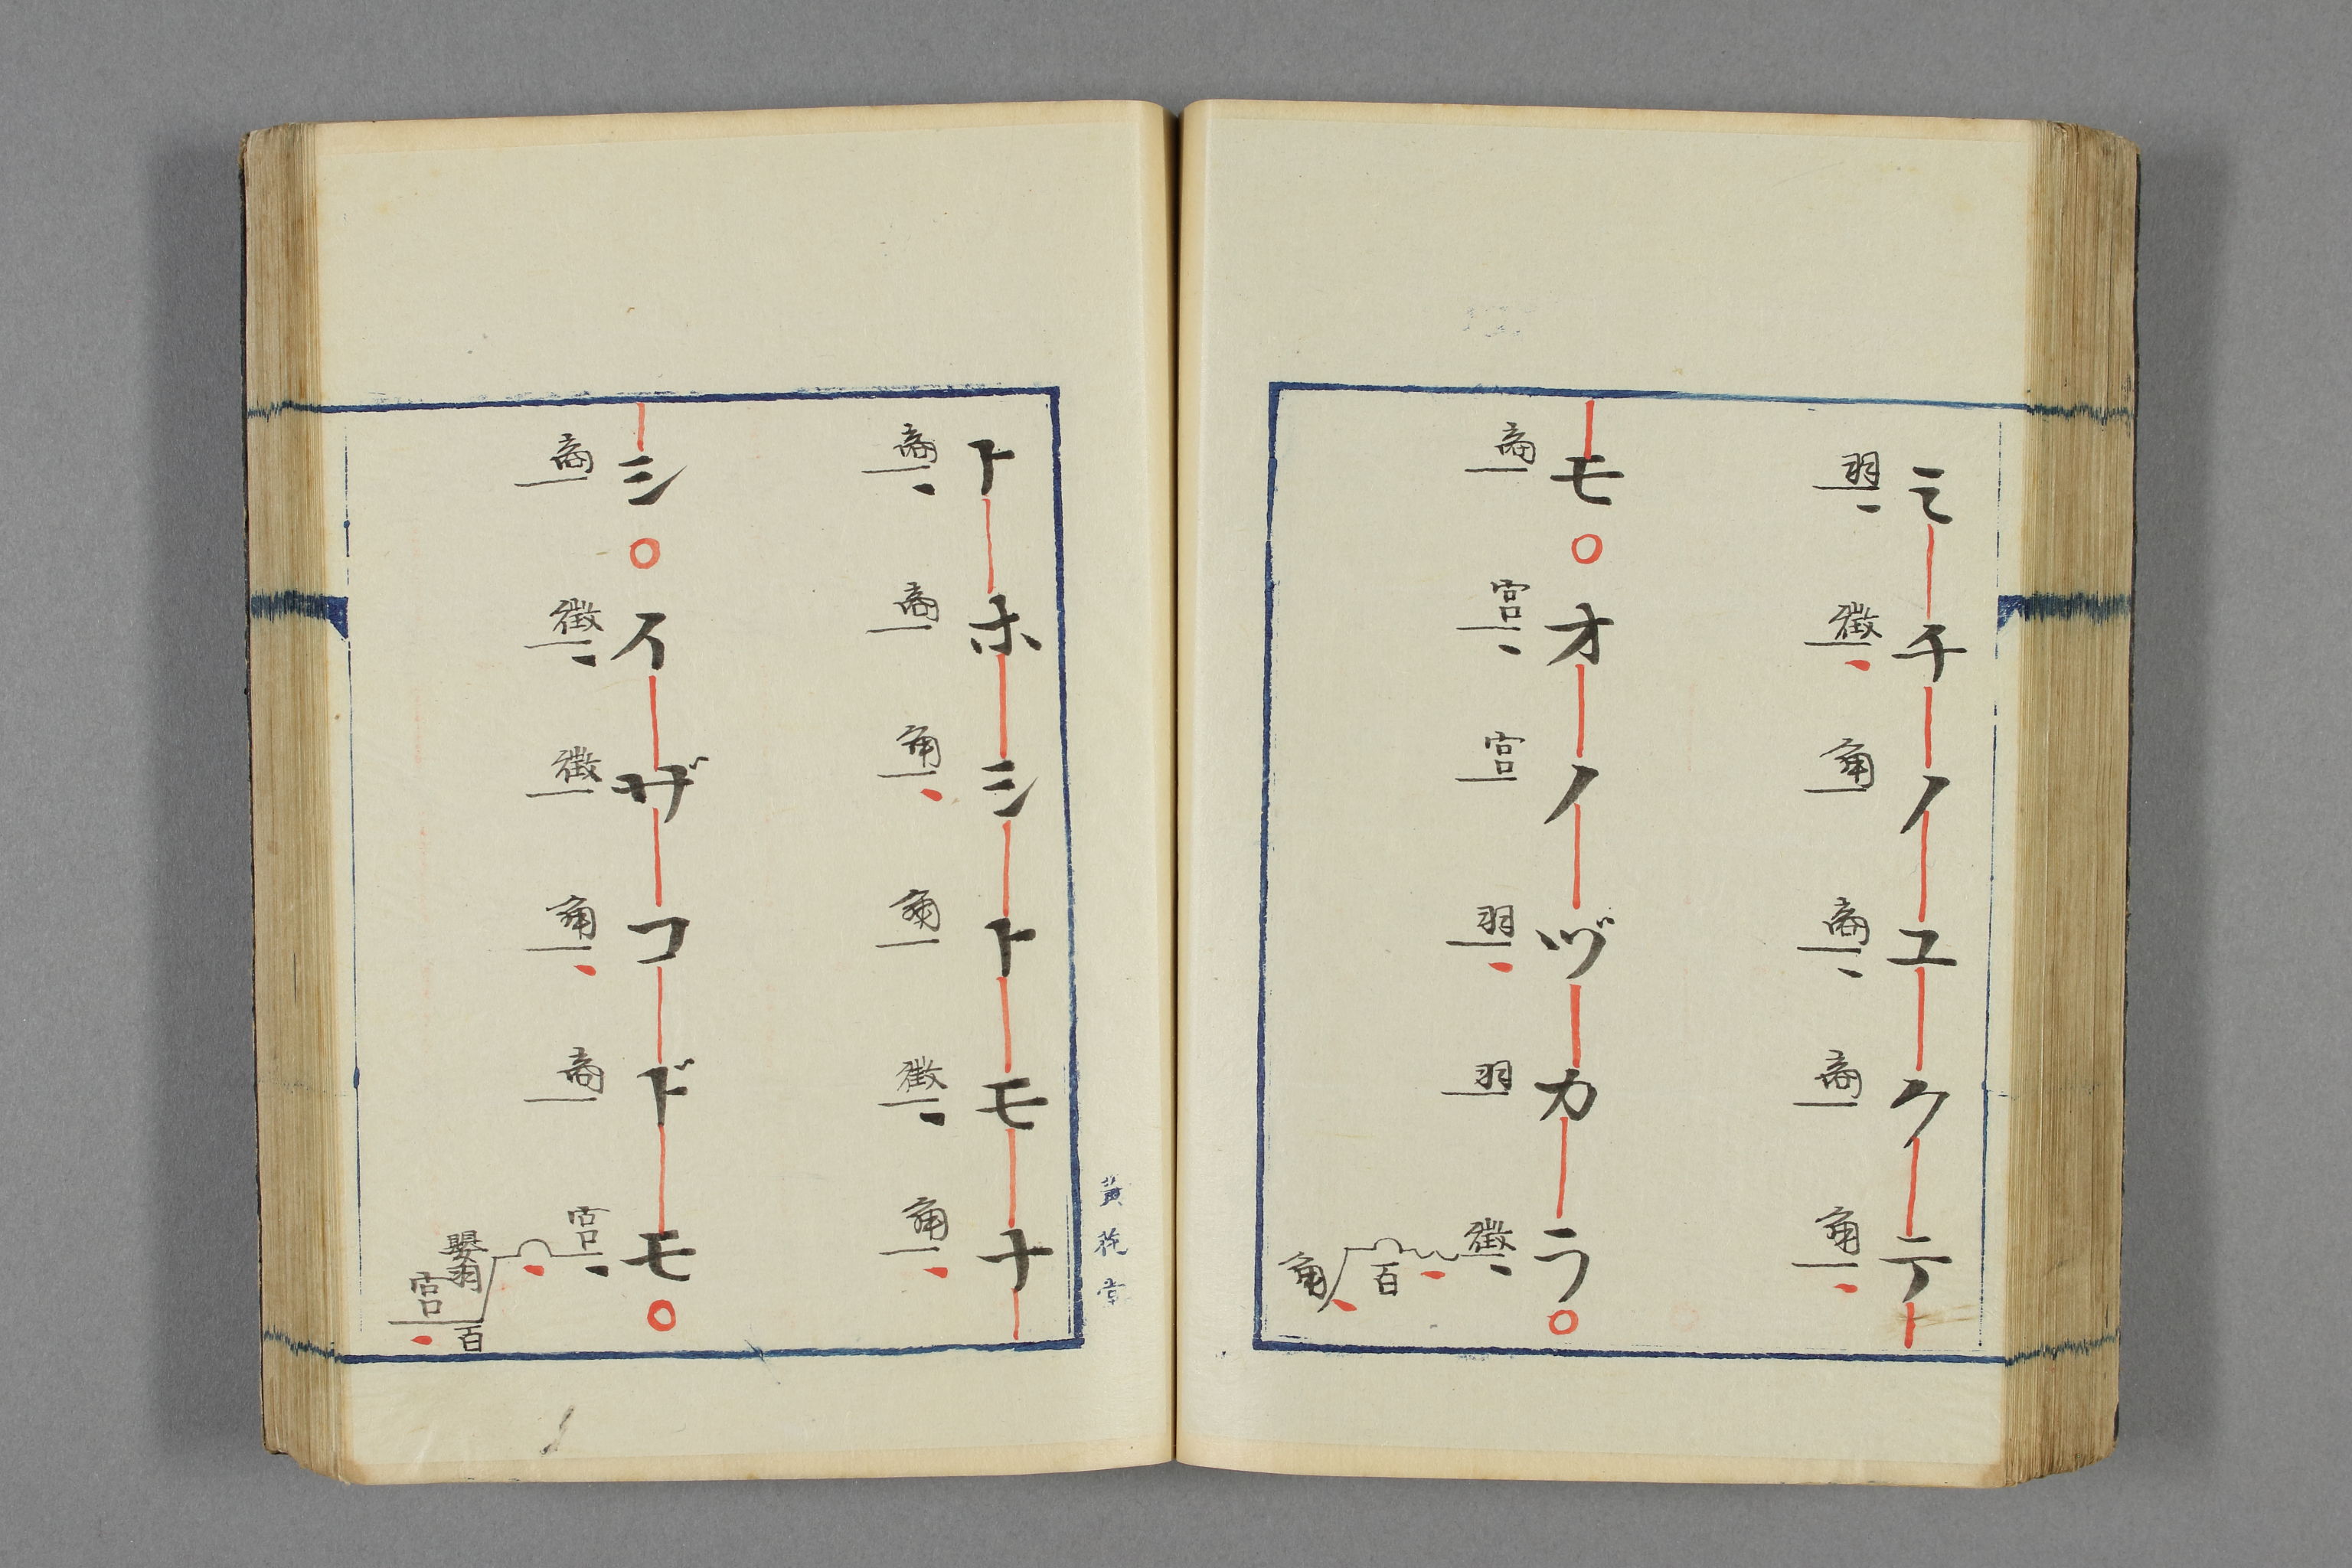 ミチノユクテ
羽徴角商商角
モ○オノヅカラ○
商宮宮羽羽徴百角
黄 堂
トホシトモナ
商商角角徴角
シ○イザコドモ○
商徴徴角商宮
嬰羽百
宮